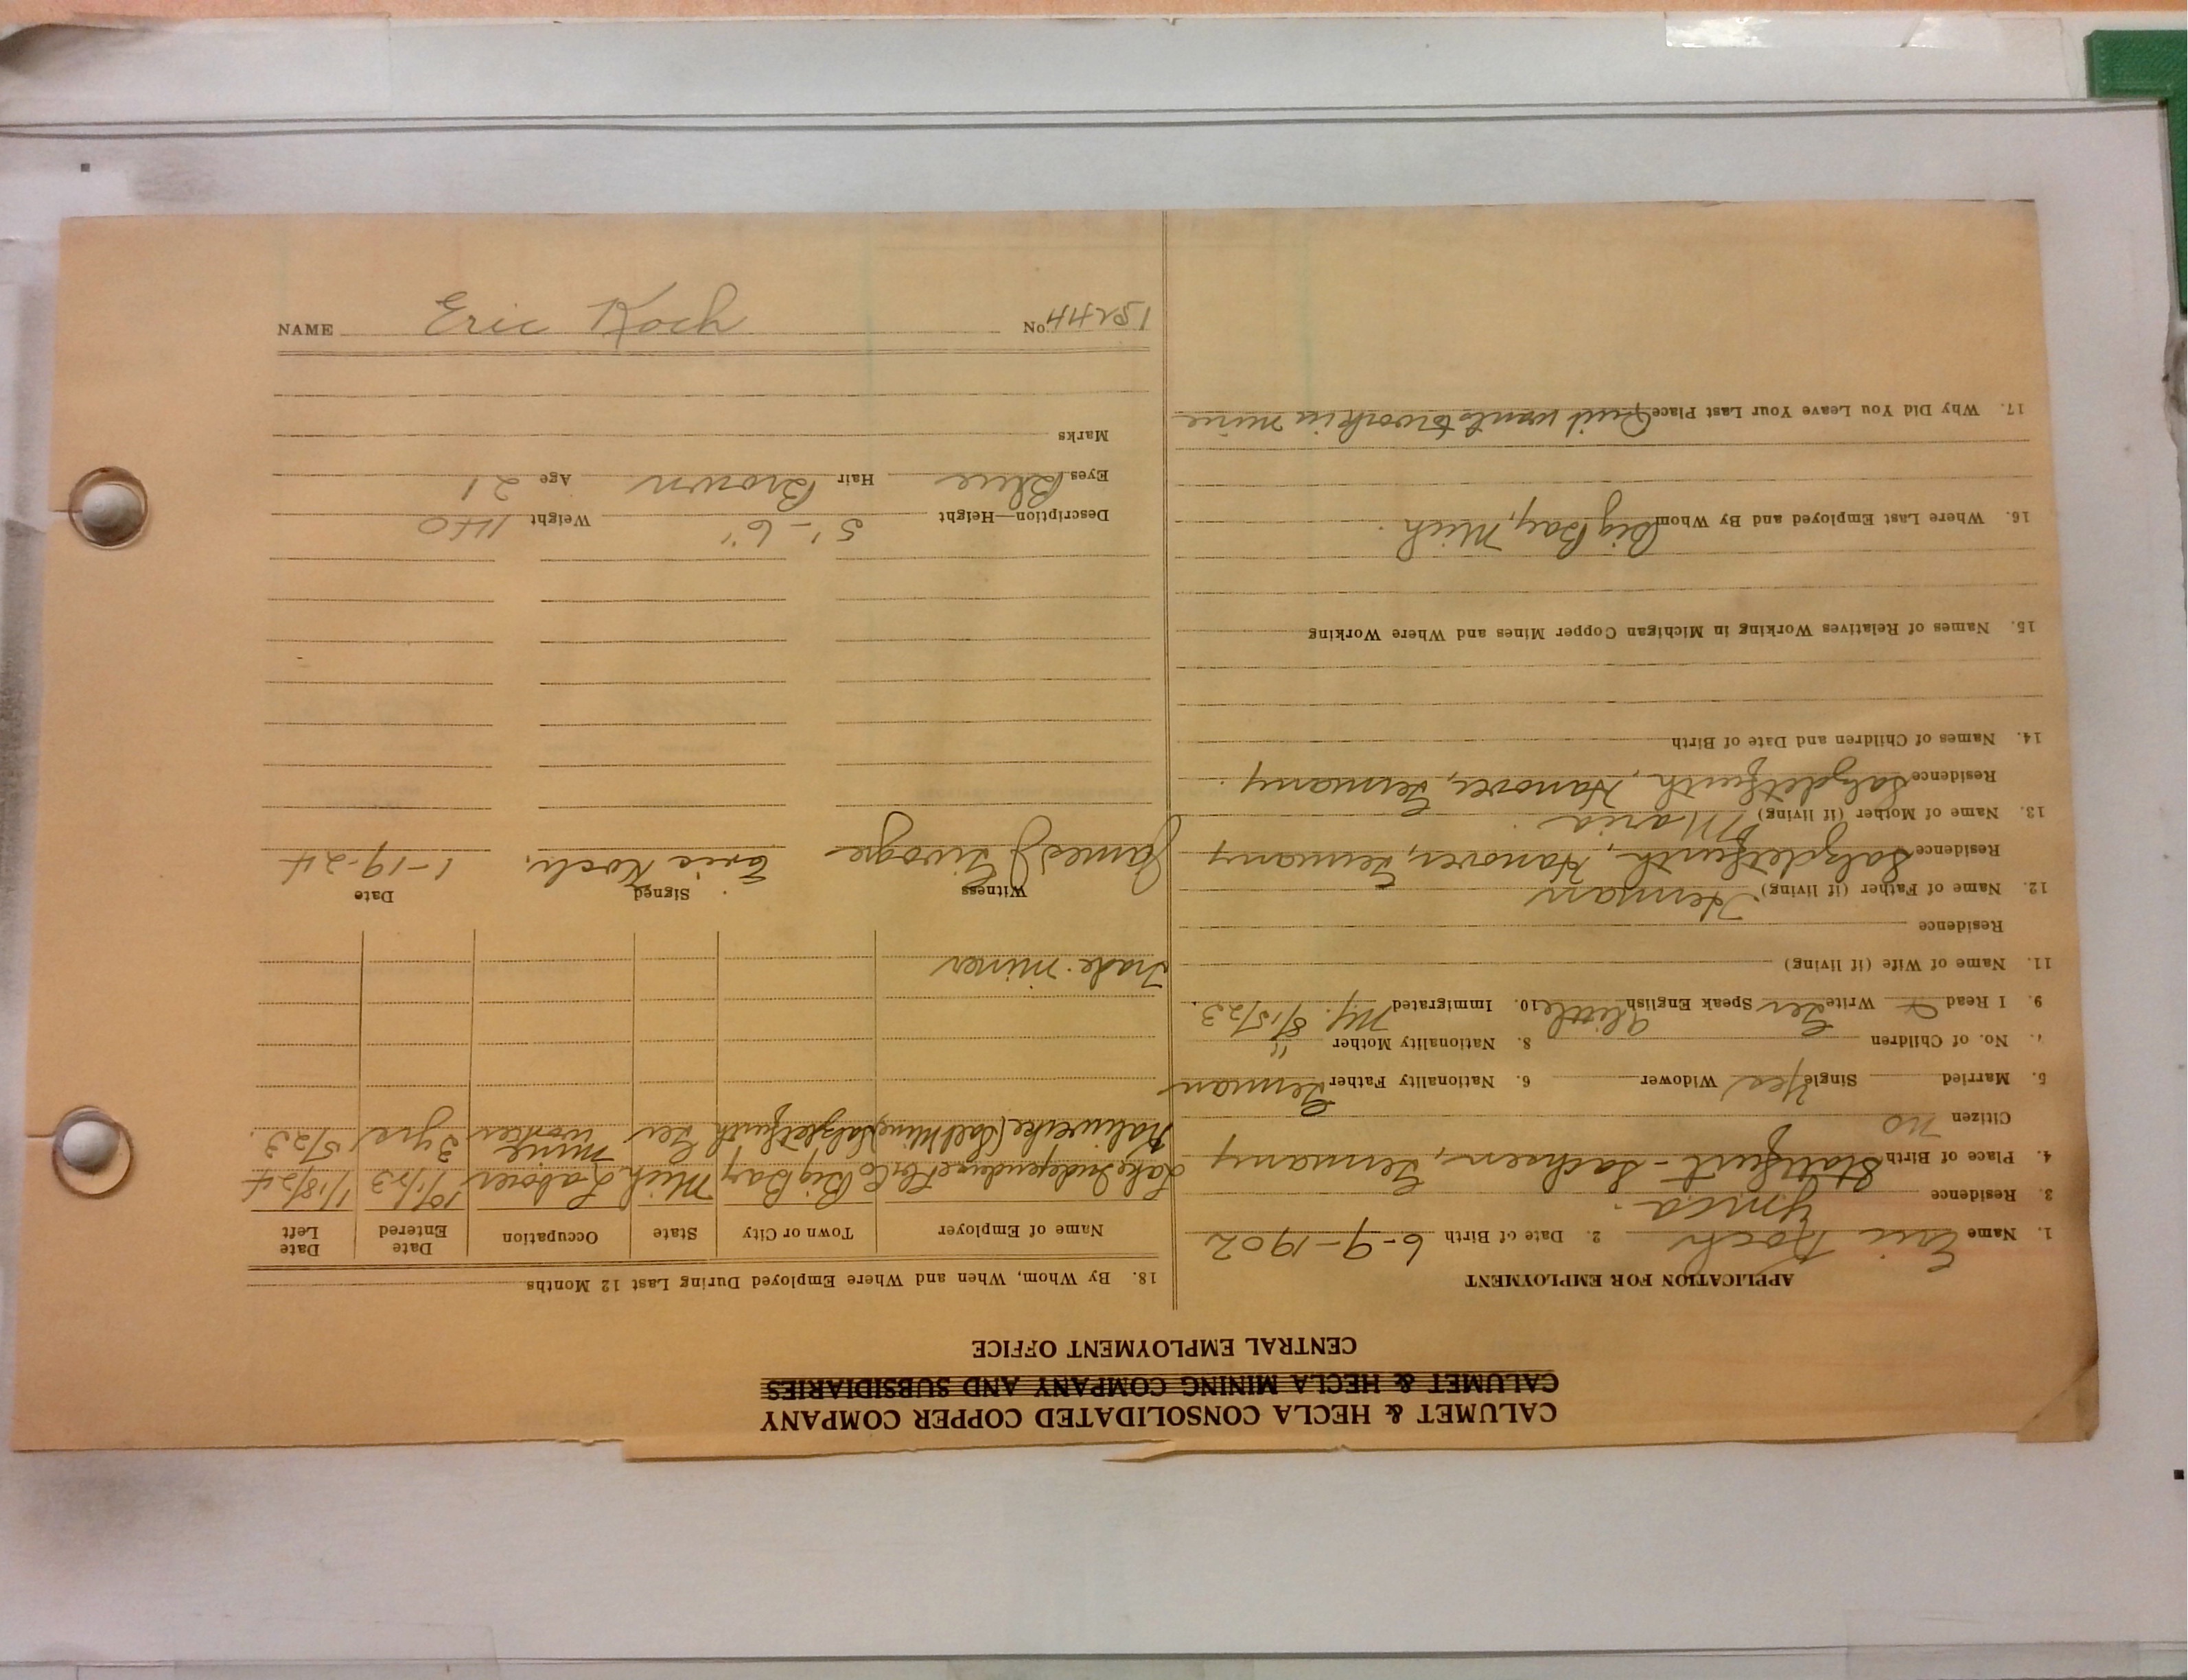 CALUMET & HECLA CONSOLIDATED COPPER COMPANY
CALUMET & HECLA MINING COMPANY AND SUBSIDIARIES
CENTRAL EMPLOYMENT OFFICE
APPLICATION FOR EMPLOYMENT
1. Name Eric Koch 2. Date of Birth 6-9-1902
3. Residence Ymca.
4. Place of Birth Stassfurt - Sachsen, Germany
Citizen no
5. Married Single Yes Widower 6. Nationality Father German
7. No. of Children 8. Nationality Mother "
9. I Read & Write Ger Speak English a little 10. Immigrated Ny. 8/15/23.
11. Name of Wife (if living)
Residence
12. Name of Father (if living) Herman
Residence Salzdetfurth, Hanover, Germany
13. Name of Mother (if living) Maria.
Residence Salzdetfurth, Hanover, Germany.
14. Names of Children and Date of Birth
15. Names of Relatives Working in Michigan Copper Mines and Where Working
16. Where Last Employed and By Whom Big Bay, Mich.
17. Why Did You Leave Your Last Place Quit wants to work in mine
18. By Whom, When and Where Employed During Last 12 Months
Name of Employer Town or City State Occupation Date Entered Date Left
Lake Independence Lbr Co Big Bay Mich Laborer 10/1/23 1/18/24
Kaliwerke (Salt Mine) Salzdetfurth Ger mine worker 3 yrs 5/23.
Trade. miner
Witness Signed Date
James J Eric Koch. 1-19-24
Description—Height 5'-6" Weight 140
Eyes Blue Hair Brown Age 21
Marks
NAME Eric Koch No. 15244